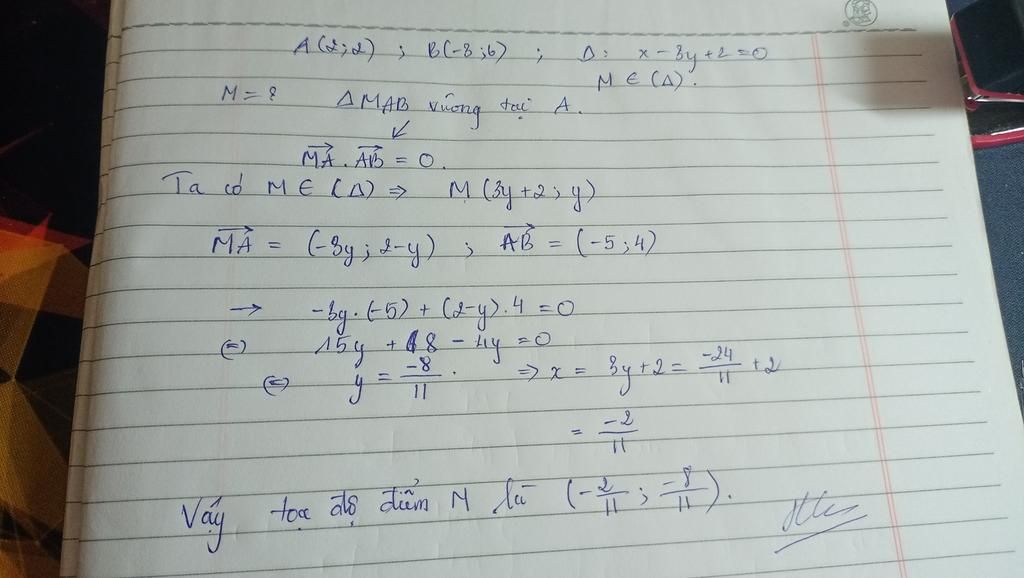 A(2;2) ; B(-3;6) ; Δ: x - 3y + 2 = 0
M ∈ (Δ).
M = ? ΔMAB vuông tại A.
↙
$\overrightarrow{MA}$ . $\overrightarrow{AB}$ = 0.
Ta có M ∈ (Δ) ⇒ M (3y+2; y)
$\overrightarrow{MA}$ = (-3y; 2-y) ; $\overrightarrow{AB}$ = (-5;4)
→ -3y.(-5) + (2-y).4 = 0
⇔ 15y + 8 - 4y = 0
⇔ y = $\frac{-8}{11}$. ⇒ x = 3y+2 = $\frac{-24}{11}$ + 2
= $\frac{-2}{11}$
Vậy tọa độ điểm M là ($-\frac{2}{11}$; $\frac{-8}{11}$).